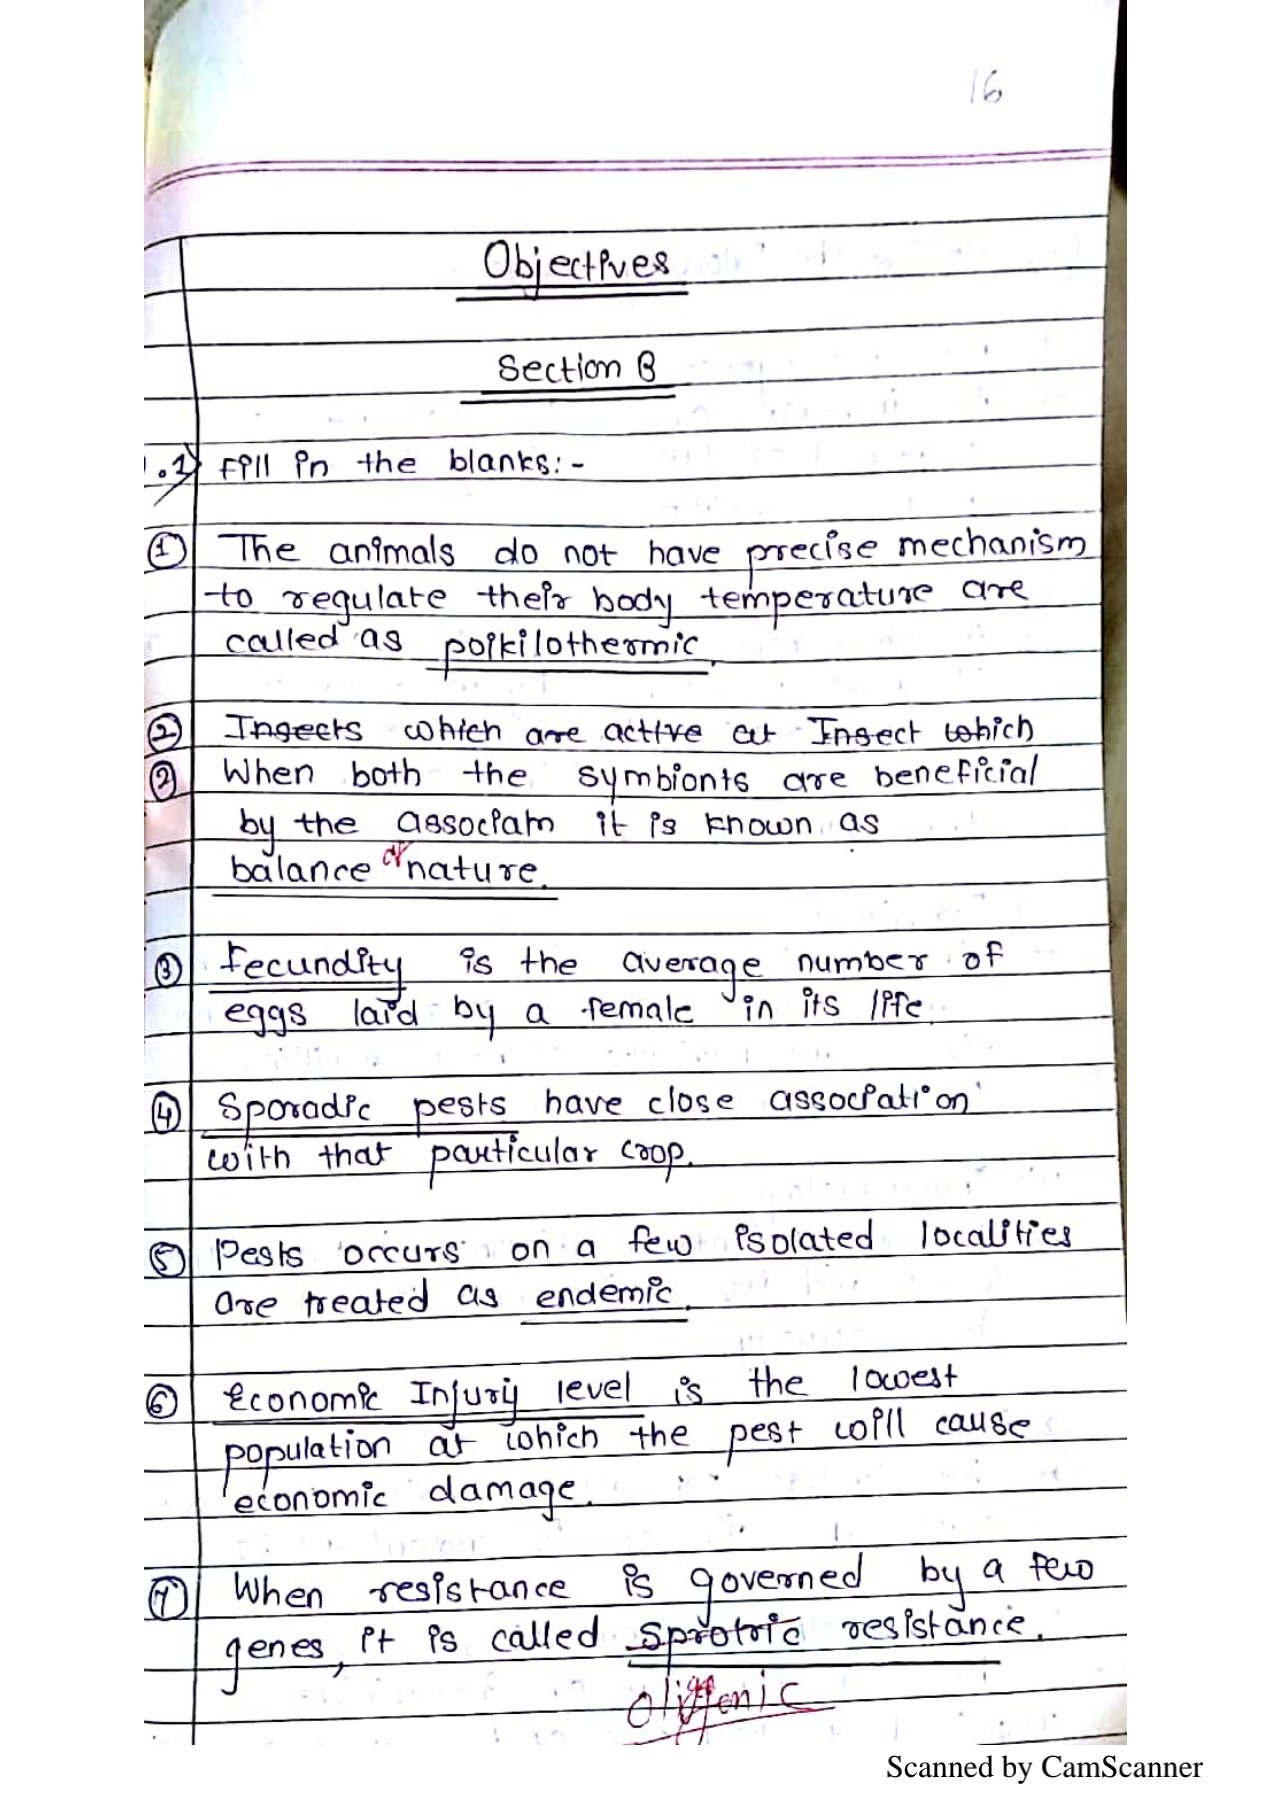 16
Objectives
Section B
.1) Fill in the blanks:-
① The animals do not have precise mechanism
to regulate their body temperature are
called as poikilothermic.
② Insects which are active at Insect which
② When both the symbionts are beneficial
by the associatn it is known as
balance of nature.
③ Fecundity is the average number of
eggs laid by a female in its life.
④ Sporadic pests have close association
with that particular crop.
⑤ Pests occurs on a few isolated localities
are treated as endemic.
⑥ Economic Injury level is the lowest
population at which the pest will cause
economic damage.
⑦ When resistance is governed by a few
genes, it is called resistance.
Oligenic
Scanned by CamScanner